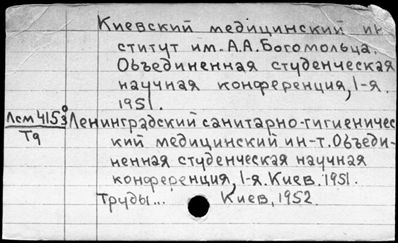 Киевский медицинский ин-
ститут им. А.А.Богомольца.
Объединенная студенческая
научная конференция, 1-я.
1951.
Лсм 415 Ленинградский санитарно-гигиеничес
Т9 кий медицинский ин-т. Объеди-
ненная студенческая научная
конференция, 1-я. Киев. 1951.
Труды... Киев, 1952.